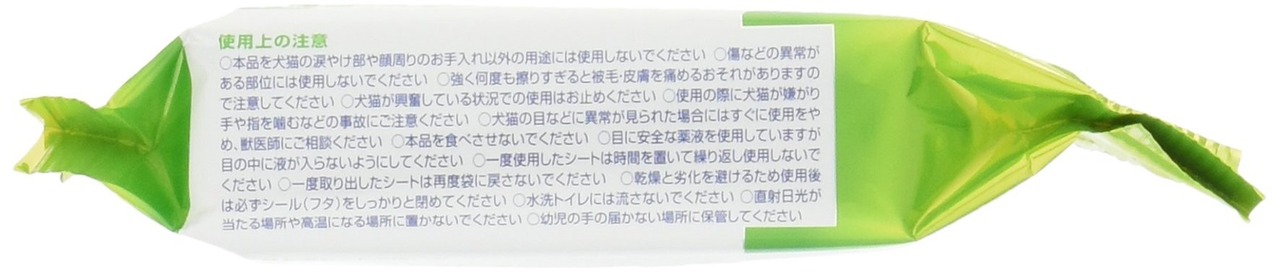 使用上の注意
○本品を犬猫の涙やけ部や顔周りのお手入れ以外の用途には使用しないでください ○傷などの異常が
ある部位には使用しないでください ○強く何度も擦りすぎると被毛・皮膚を痛めるおそれがありますの
で注意してください ○犬猫が興奮している状況での使用はお止めください ○使用の際に犬猫が嫌がり
手や指を噛むなどの事故にご注意ください ○犬猫の目などに異常が見られた場合にはすぐに使用をや
め、獣医師にご相談ください ○本品を食べさせないでください ○目に安全な薬液を使用していますが
目の中に液が入らないようにしてください ○一度使用したシートは時間を置いて繰り返し使用しないで
ください ○一度取り出したシートは再度袋に戻さないでください ○乾燥と劣化を避けるため使用後
は必ずシール(フタ)をしっかりと閉めてください ○水洗トイレには流さないでください ○直射日光が
当たる場所や高温になる場所に置かないでください ○幼児の手の届かない場所に保管してください